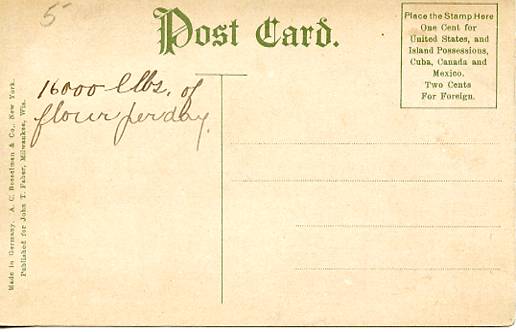 5-
Post Card.
Place the Stamp Here
One Cent for
United States, and
Island Possessions,
Cuba, Canada and
Mexico.
Two Cents
For Foreign.
16000 llbs. of
flour per day.
Made in Germany. A. C. Bosselman & Co., New York.
Published for John T. Faber, Milwaukee, Wis.